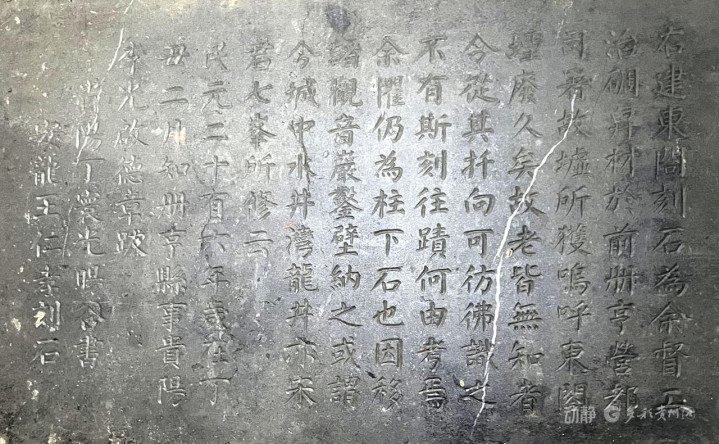 右建東閣刻石為余督工
治硐尋材於前册亨營都
司署故墟所獲嗚呼東閣
堙廢久矣故老皆無知者
今從其扦向可彷彿識之
不有斯刻往蹟何由考焉
余懼仍為柱下石也因移
諸觀音巖鑿壁納之或謂
今城中水井灣龍井亦朱
君七峯所修云
民元二十有六年歲在丁
丑二月知册亨縣事貴陽
李光啟德章跋
貴陽丁懷光映 書
安龍王仁 刻石
动静